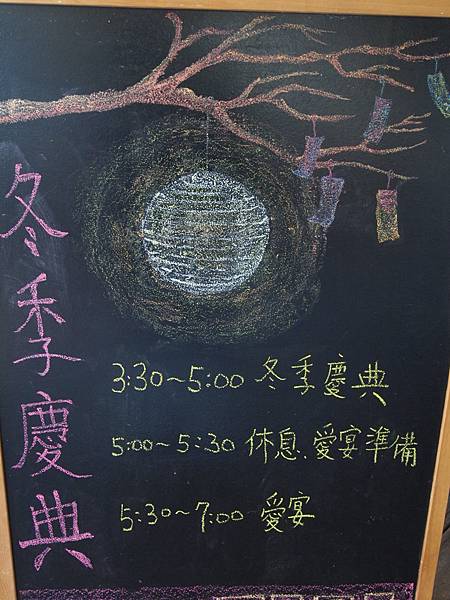 冬季慶典
3:30～5:00 冬季慶典
5:00～5:30 休息、愛宴準備
5:30～7:00 愛宴